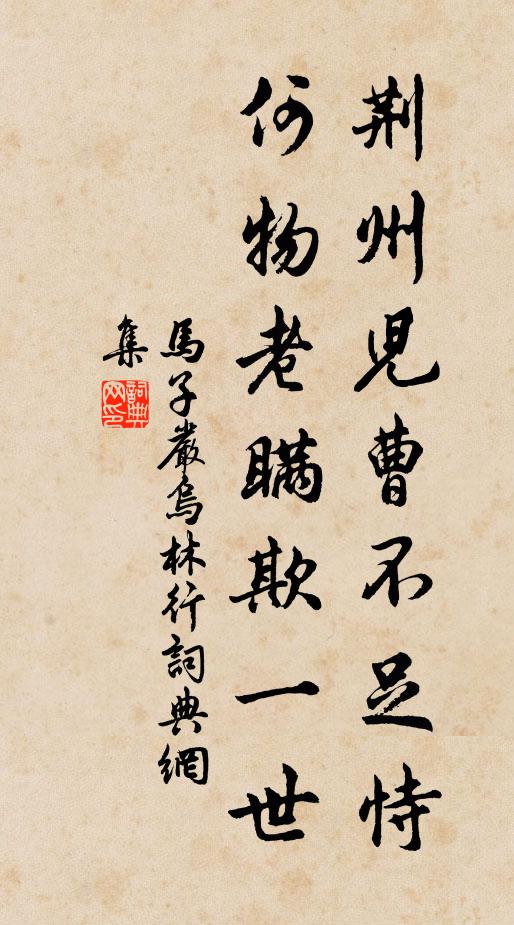 荆州兒曹不足恃
何物老瞞欺一世
馬子嚴烏林行詞典網
集
詞典
网印